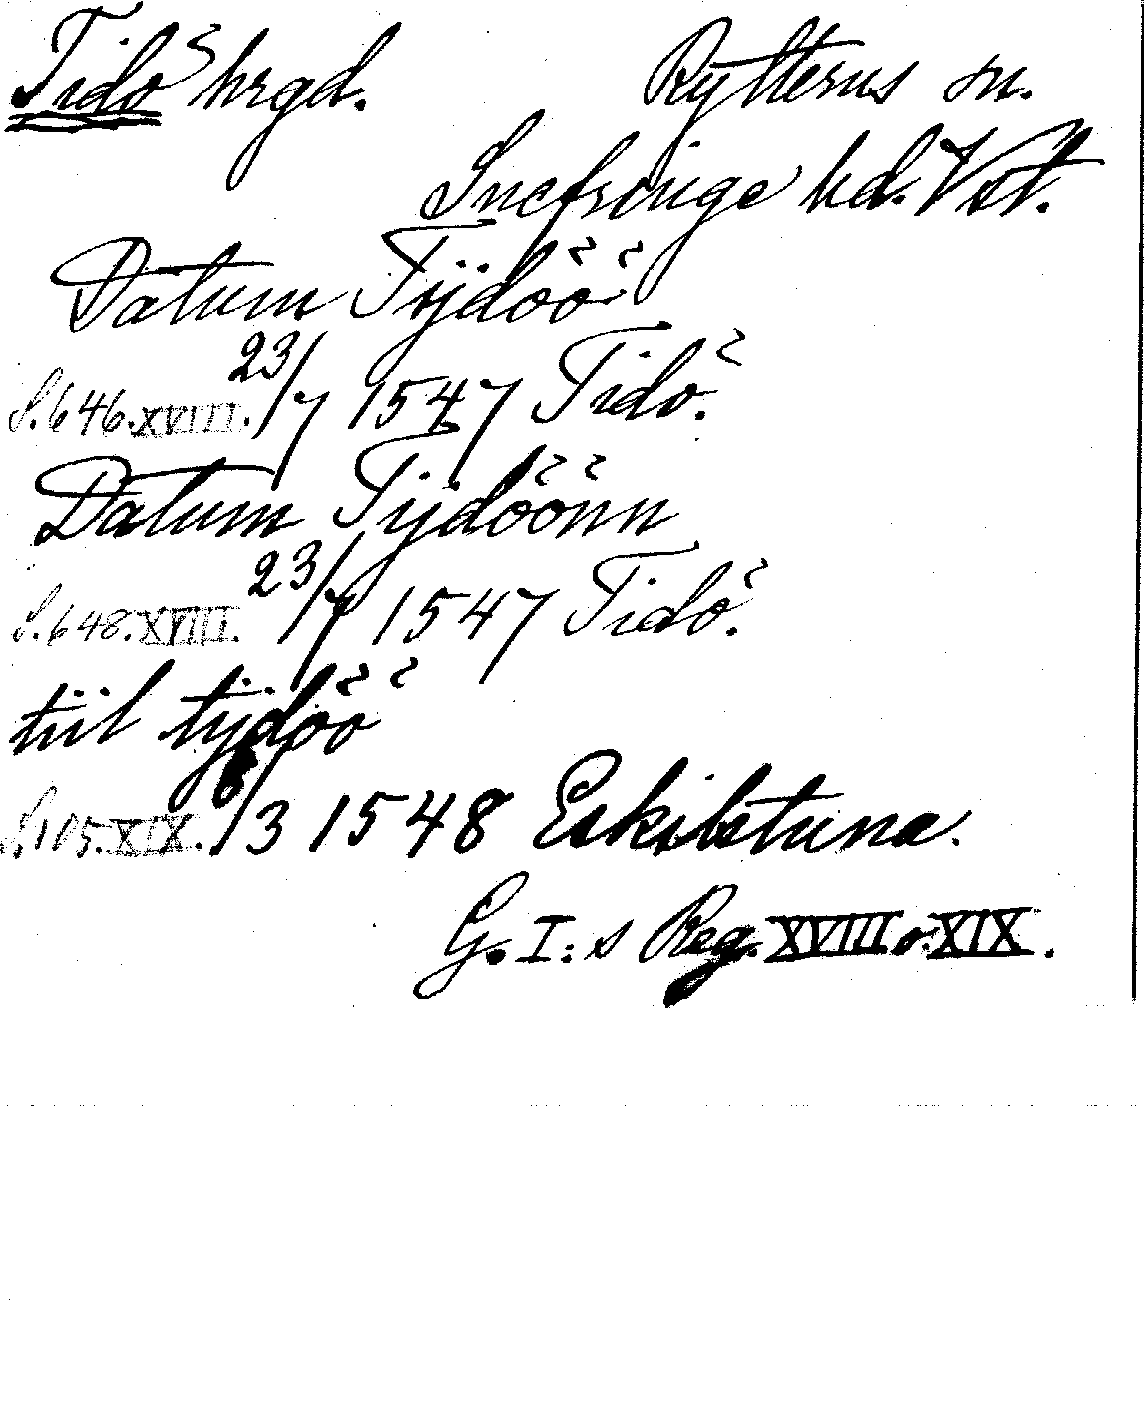 Tidö hrgd. Rytterns sn.
Snefringe hd. Vstt.
Datum Tijdöö
S. 646. XVIII. 23/7 1547 Tidö.
Datum Tijdöönn
S. 648. XVIII. 23/7 1547 Tidö.
tiil tijdöö
S. 105. XIX. 6/3 1548 Eskilstuna.
G. I:s Reg. XVIII o. XIX.